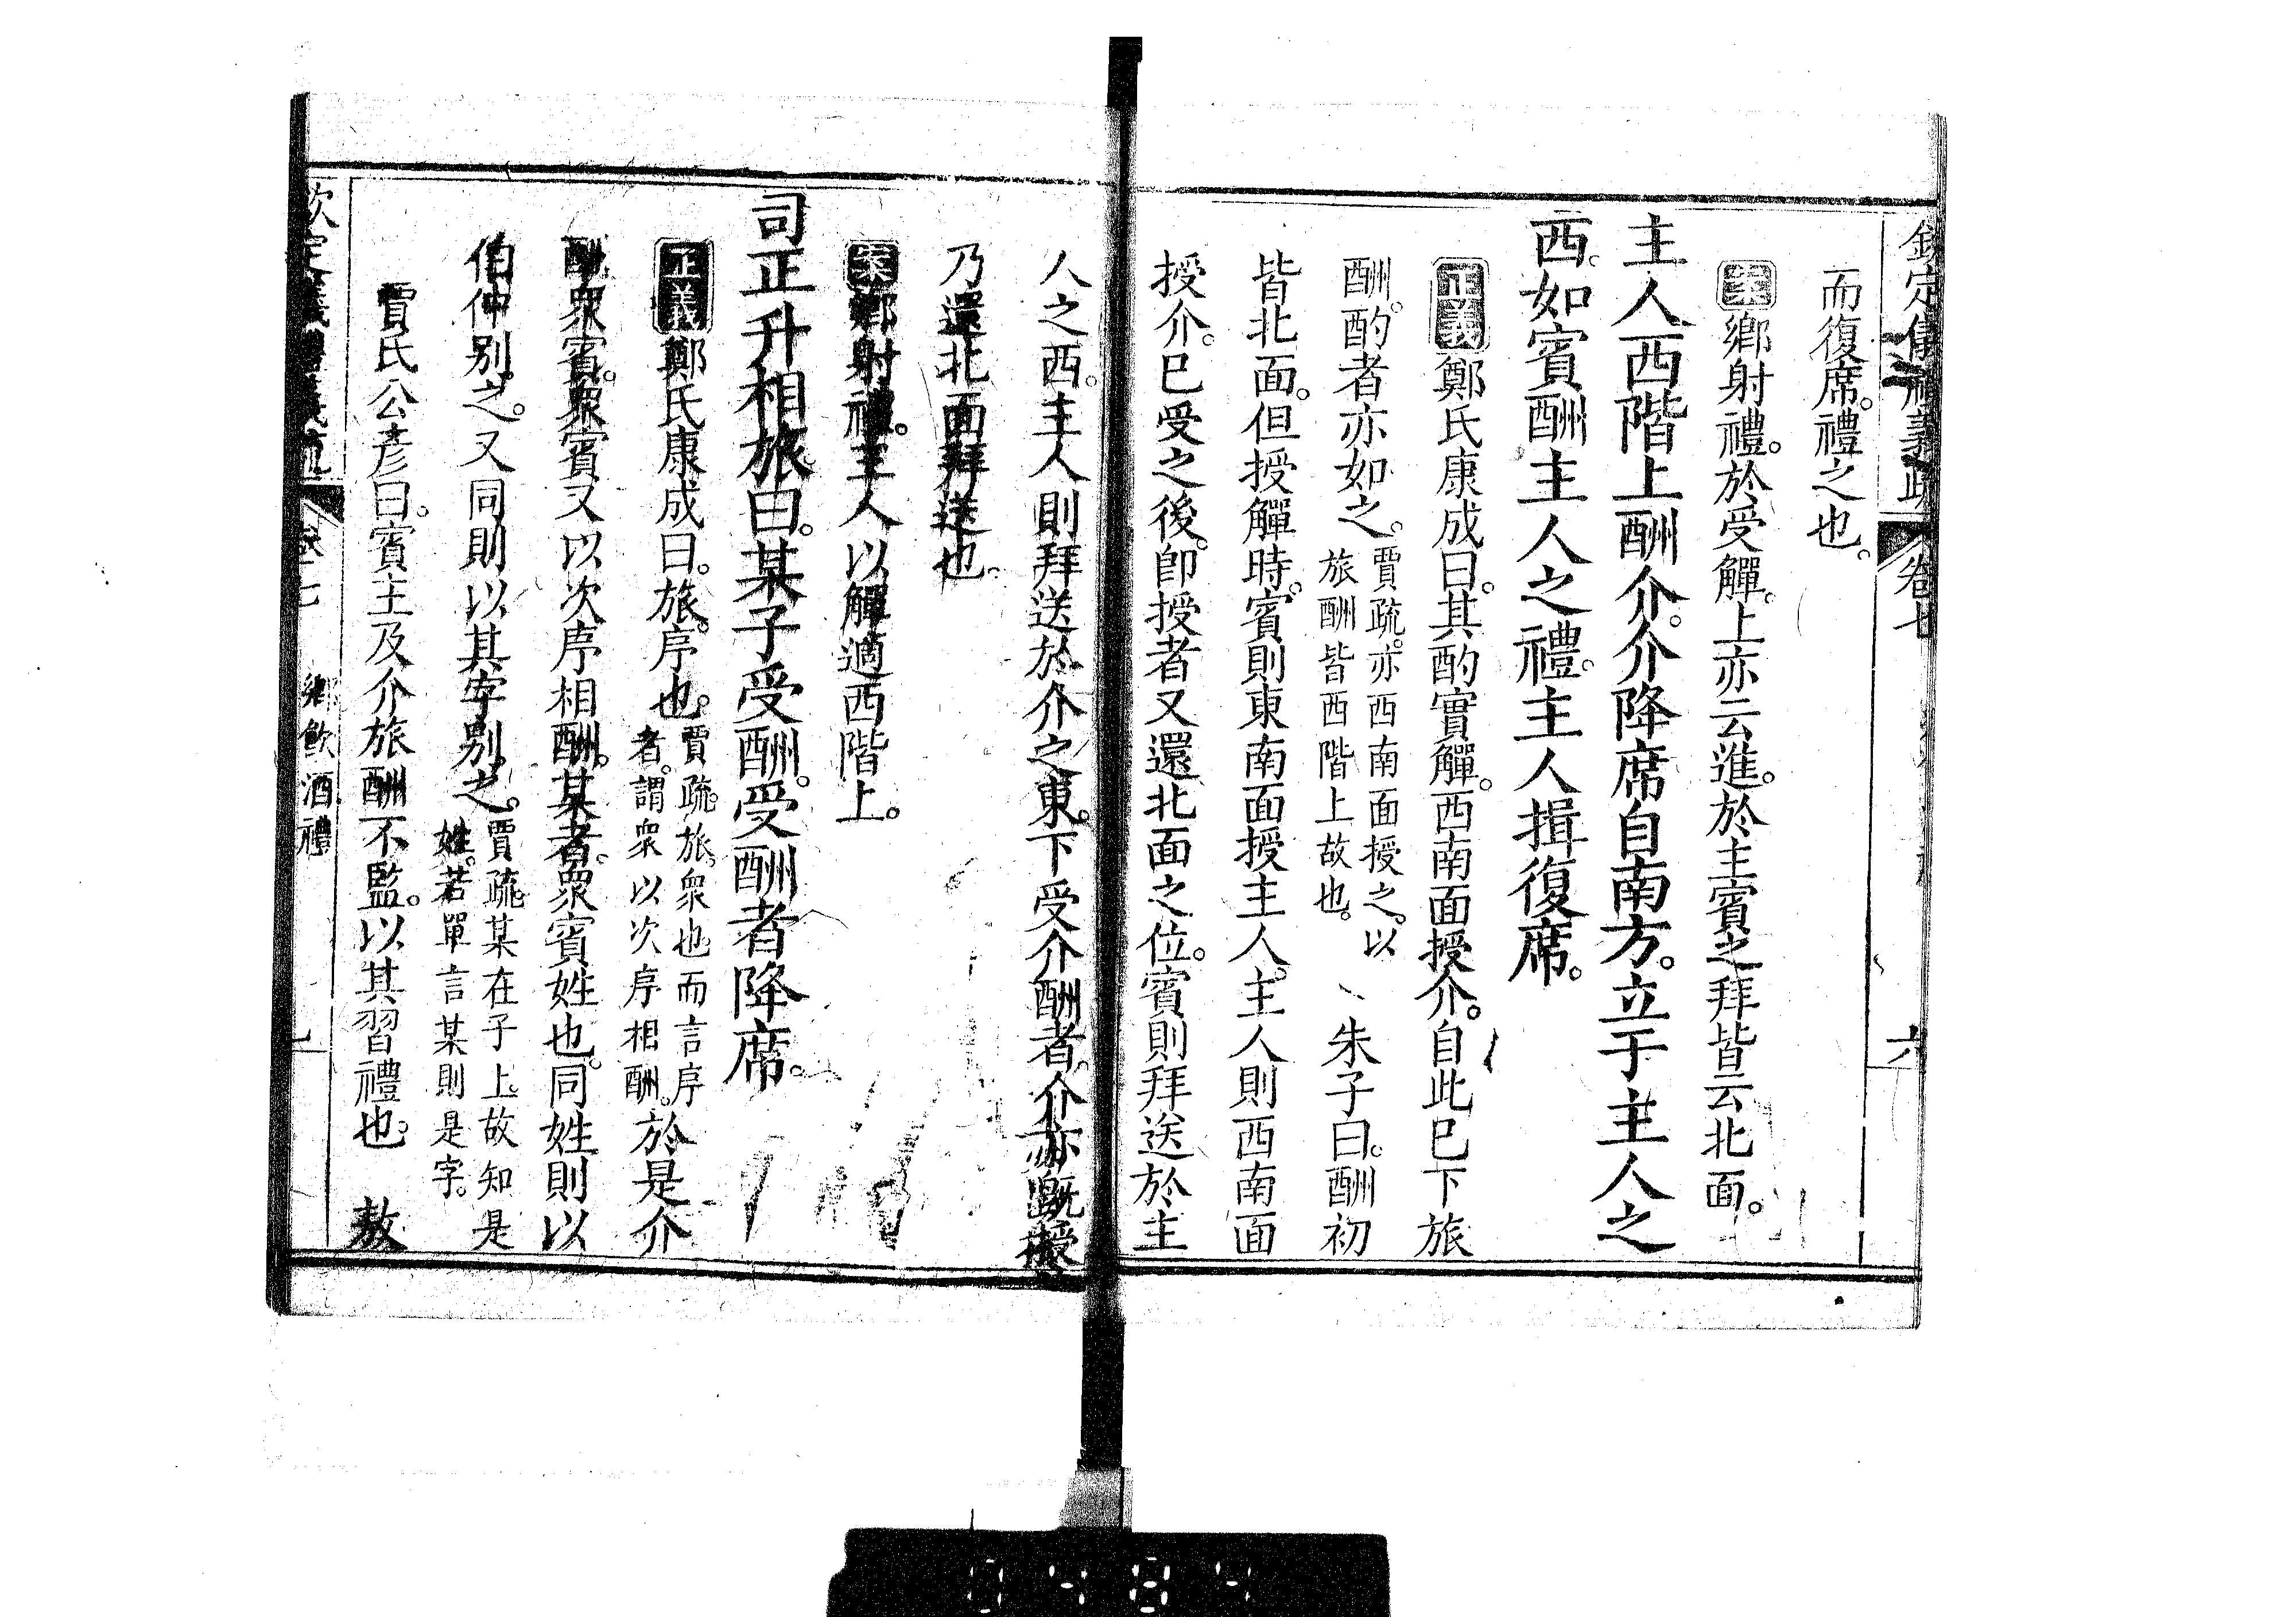 欽定儀禮義疏 卷七 六
而復席。禮之也。
案鄉射禮。於受觶。上亦云進。於主賓之拜皆云北面。
主人西階上酬介。介降席自南方。立于主人之
西。如賓酬主人之禮。主人揖復席。
正義鄭氏康成曰。其酌實觶。西南面授介。自此已下旅
酬。酌者亦如之。賈疏。亦西南面授之。以旅酬皆西階上故也。 朱子曰。酬初
皆北面。但授觶時。賓則東南面授主人。主人則西南面
授介。已受之後。卽授者又還北面之位。賓則拜送於主
人之西。主人則拜送於介之東。下受介酬者。介亦旣授
乃還北面拜送也。
案鄉射禮。主人以觶適西階上。
司正升相旅。曰。某子受酬。受酬者降席。
正義鄭氏康成曰。旅。序也。賈疏。旅。衆也而言序者。謂衆以次序相酬。於是介
酬衆賓。衆賓又以次序相酬。某者。衆賓姓也。同姓則以
伯仲別之。又同則以其字別之。賈疏。某在子上。故知是姓。若單言某則是字。
賈氏公彥曰。賓主及介旅酬不監。以其習禮也。 敖
欽定儀禮義疏 卷七 鄉飲酒禮 七